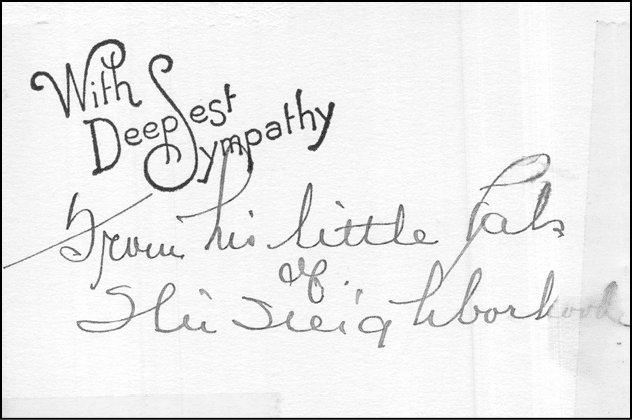 With
Deepest
Sympathy
From his little Pals
of
The Neighborhood